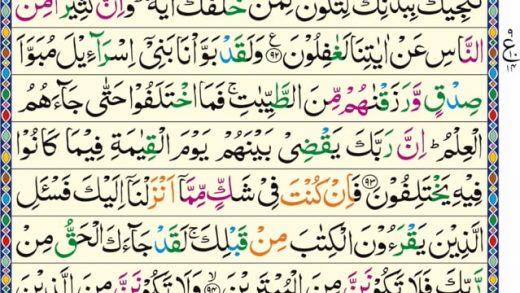 نُنَجِّيْكَ بِبَدَنِكَ لِتَكُوْنَ لِمَنْ خَلْفَكَ اٰيَةً ؕ وَاِنَّ كَثِيْرًا مِّنَ
النَّاسِ عَنْ اٰيٰتِنَا لَغٰفِلُوْنَ ﴿۹۲﴾ وَلَقَدْ بَوَّاْنَا بَنِيْۤ اِسْرَآءِيْلَ مُبَوَّاَ
صِدْقٍ وَّرَزَقْنٰهُمْ مِّنَ الطَّيِّبٰتِ ۚ فَمَا اخْتَلَفُوْا حَتّٰى جَآءَهُمُ
الْعِلْمُ ؕ اِنَّ رَبَّكَ يَقْضِيْ بَيْنَهُمْ يَوْمَ الْقِيٰمَةِ فِيْمَا كَانُوْا
فِيْهِ يَخْتَلِفُوْنَ ﴿۹۳﴾ فَاِنْ كُنْتَ فِيْ شَكٍّ مِّمَّاۤ اَنْزَلْنَاۤ اِلَيْكَ فَسْـَٔلِ
الَّذِيْنَ يَقْرَءُوْنَ الْكِتٰبَ مِنْ قَبْلِكَ ۚ لَقَدْ جَآءَكَ الْحَقُّ مِنْ
رَّبِّكَ فَلَا تَكُوْنَنَّ مِنَ الْمُمْتَرِيْنَ ﴿۹۴﴾ وَلَا تَكُوْنَنَّ مِنَ الَّذِيْنَ